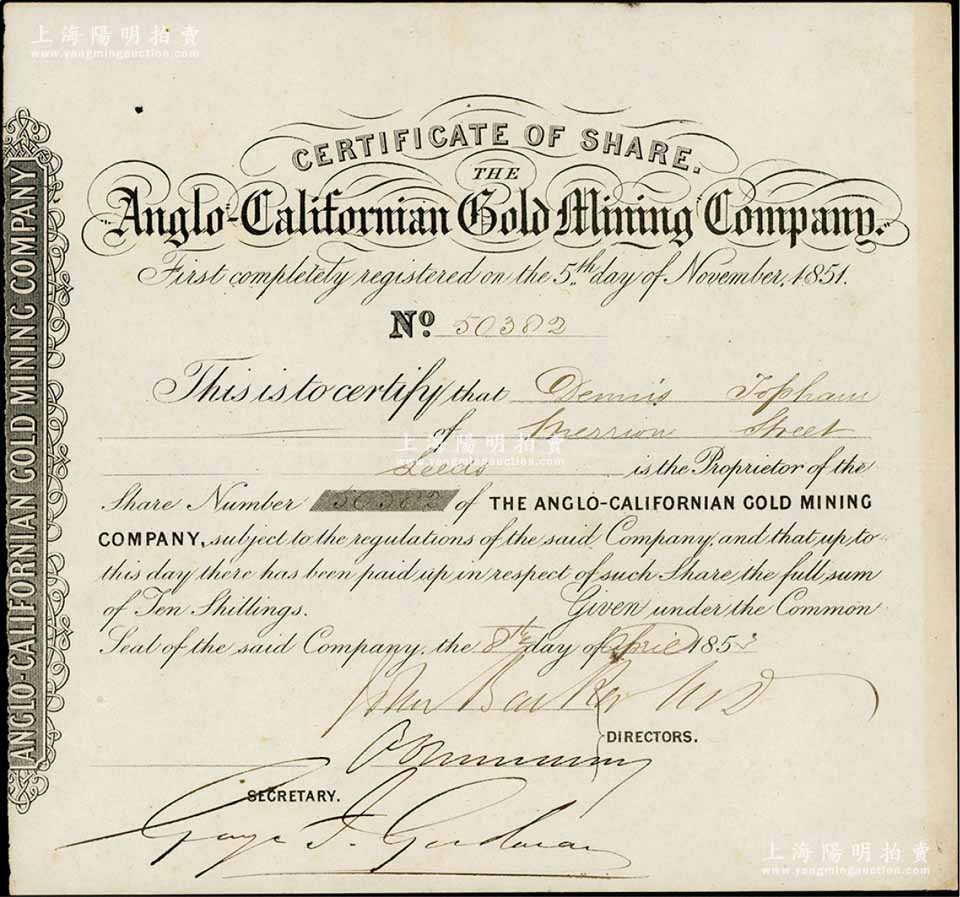 上海陽明拍賣
www.yangmingauction.com
CERTIFICATE OF SHARE.
THE
Anglo-Californian Gold Mining Company.
First completely registered on the 5th day of November, 1851.
No 50382
This is to certify that Dennis Topham
of Merrion Street
上海陽明拍賣
www.yangmingauction.com
Leeds is the Proprietor of the
Share Number 50382 of THE ANGLO-CALIFORNIAN GOLD MINING
COMPANY, subject to the regulations of the said Company, and that up to
this day there has been paid up in respect of such Share the full sum
of Ten Shillings. Given under the Common
Seal of the said Company, the 8th day of April 185
John Barker MD
DIRECTORS.
SECRETARY.
George
ANGLO-CALIFORNIAN GOLD MINING COMPANY
上海陽明拍賣
www.yangmingauction.com